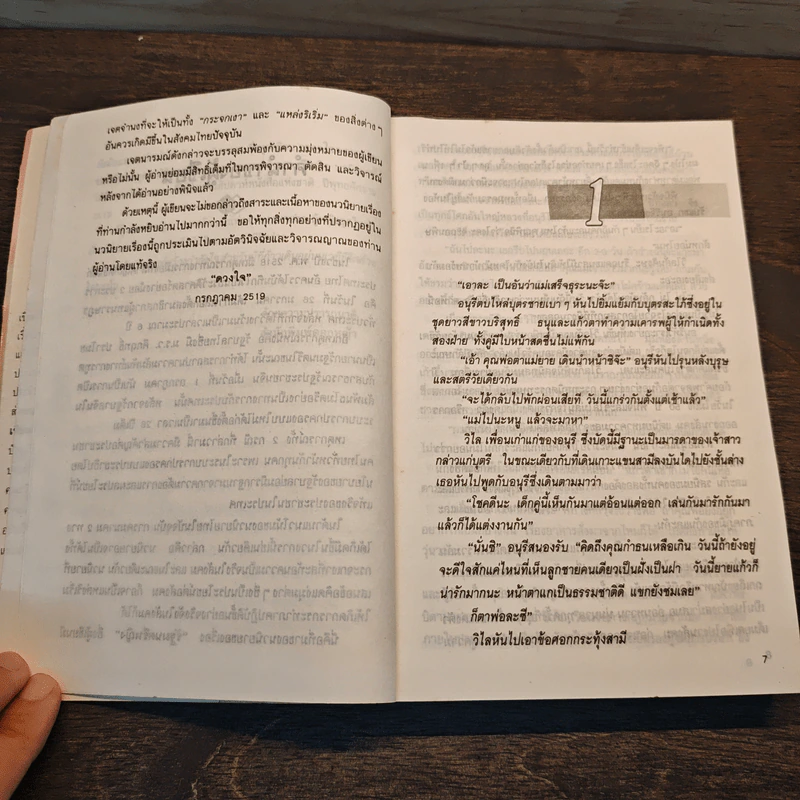 เจตจำนงที่จะให้เป็นทั้ง "กระจกเงา" และ "แหล่งริเริ่ม" ของสิ่งต่าง ๆ
อันควรเกิดมีขึ้นในสังคมไทยปัจจุบัน
เจตนารมณ์ดังกล่าวจะบรรลุสมพ้องกับความมุ่งหมายของผู้เขียน
หรือไม่นั้น ผู้อ่านย่อมมีสิทธิ์เต็มที่ในการพิจารณา ตัดสิน และวิจารณ์
หลังจากได้อ่านอย่างพินิจแล้ว
ด้วยเหตุนี้ ผู้เขียนจะไม่ขอกล่าวถึงสาระและเนื้อหาของนวนิยายเรื่อง
ที่ท่านกำลังหยิบอ่านไปมากกว่านี้ ขอให้ทุกสิ่งทุกอย่างที่ปรากฏอยู่ใน
นวนิยายเรื่องนี้ถูกประเมินไปตามอัตวินิจฉัยและวิจารณญาณของท่าน
ผู้อ่านโดยแท้จริง
"ดวงใจ"
กรกฎาคม 2519
1
"เอาละ เป็นอันว่าแม่เสร็จธุระนะจ๊ะ"
อนุรีตบไหล่บุตรชายเบา ๆ หันไปยิ้มแย้มกับบุตรสะใภ้ซึ่งอยู่ใน
ชุดยาวสีขาวบริสุทธิ์ ธนูและแก้วตาทำความเคารพผู้ให้กำเนิดทั้ง
สองฝ่าย ทั้งคู่มีใบหน้าสดชื่นไม่แพ้กัน
"เอ้า คุณพ่อตาแม่ยาย เดินนำหน้าซิจ๊ะ" อนุรีหันไปรุนหลังบุรุษ
และสตรีวัยเดียวกัน
"จะได้กลับไปพักผ่อนเสียที วันนี้แกร่วกันตั้งแต่เช้าแล้ว"
"แม่ไปนะหนู แล้วจะมาหา"
วิไล เพื่อนเก่าแก่ของอนุรี ซึ่งบัดนี้มีฐานะเป็นมารดาของเจ้าสาว
กล่าวแก่บุตรี ในขณะเดียวกับที่เดินเกาะแขนสามีลงบันไดไปยังชั้นล่าง
เธอหันไปพูดกับอนุรีซึ่งเดินตามมาว่า
"โชคดีนะ เด็กคู่นี้เห็นกันมาแต่อ้อนแต่ออก เล่นกันมารักกันมา
แล้วก็ได้แต่งงานกัน"
"นั่นซิ" อนุรีสนองรับ "คิดถึงคุณกำธนเหลือเกิน วันนี้ถ้ายังอยู่
จะดีใจสักแค่ไหนที่เห็นลูกชายคนเดียวเป็นฝั่งเป็นฝา วันนี้ยายแก้วก็
น่ารักมากนะ หน้าตาแกเป็นธรรมชาติดี แขกยังชมเลย"
"ก็ตาพ่อละซี"
วิไลหันไปเอาข้อศอกกระทุ้งสามี
7